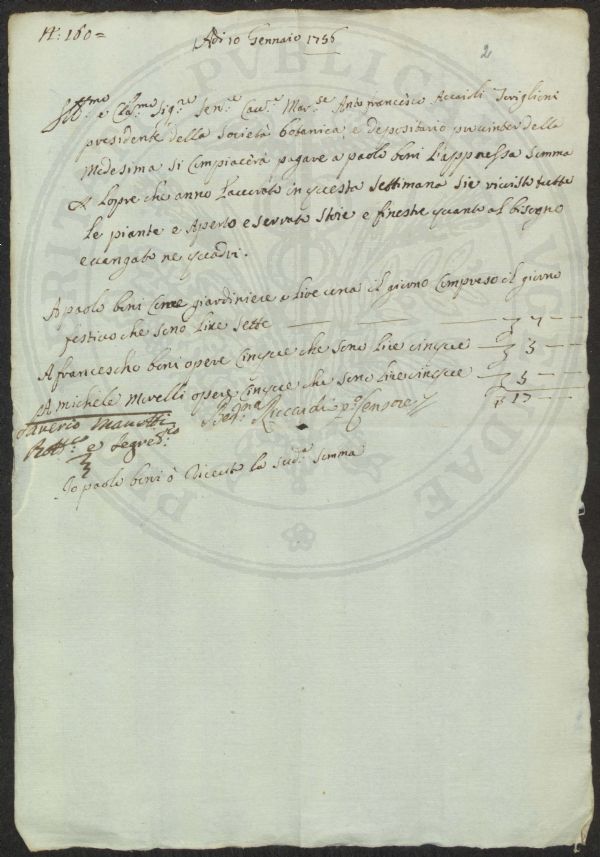 N: 160=
Adi 10 Gennaio 1756
2
Ill.mo e Cla.mo Sig.re Sen.e Cav.e Mar.se Anto francesco Acciaioli Toriglioni
presidente della Società botanica e depositario della
Medesima si Compiacerà pagare a paolo bini L'appressa Somma
Lopre che anno Laverato in questa Settimana Sie
Le piante e Aperto e servato Stoie e finestre quanto al bisogno
e vangato ne quadri.
A paolo bini Come giardiniere a Lire una il giorno Compreso il giorno
festivo che sono Lire Sette — — — 7 — —
A francescho bini opere Cinque che sono Lire Cinque — 5 — —
A michele Morelli opere Cinque che sono Lire cinque — 5 — —
17 — —
Saverio Manetti
e Segret.o
Riccardi p.o Censore
Io paolo bini ò Riceuto la sud.a Somma
PVBLICAE